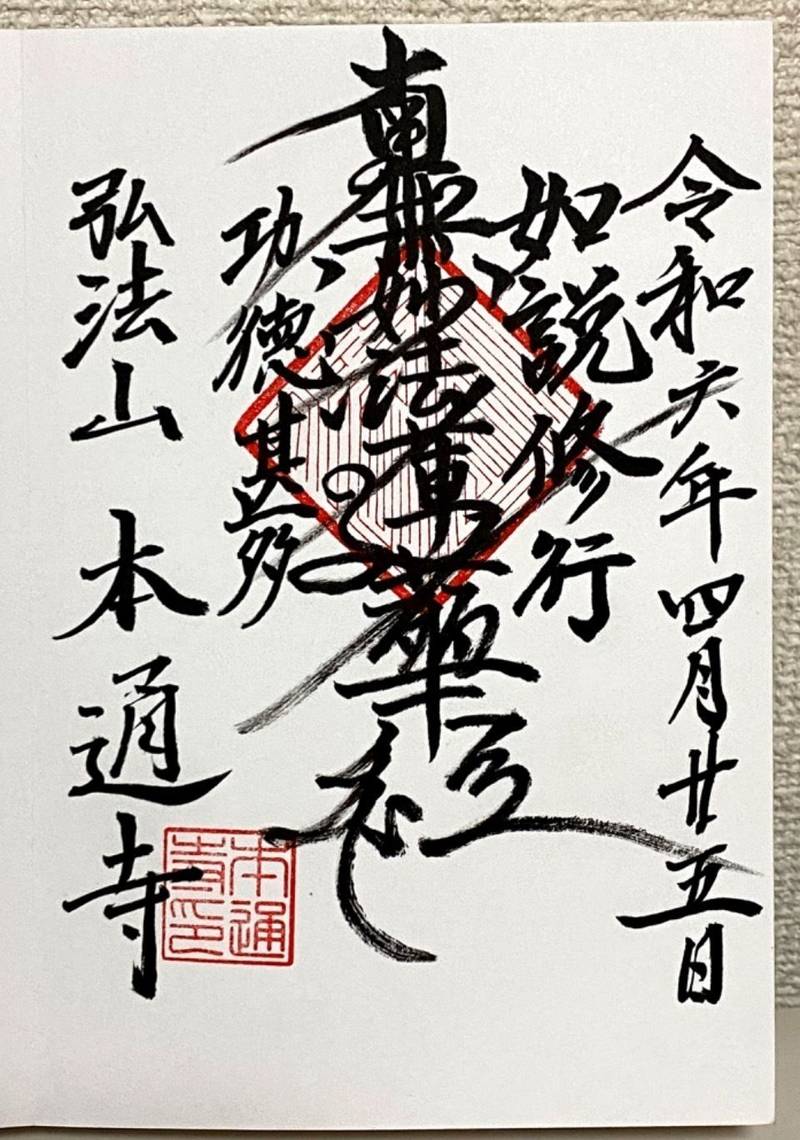 令和六年四月廿五日
如説修行
南無妙法蓮華経
功徳甚多
弘法山 本通寺
本通
寺印